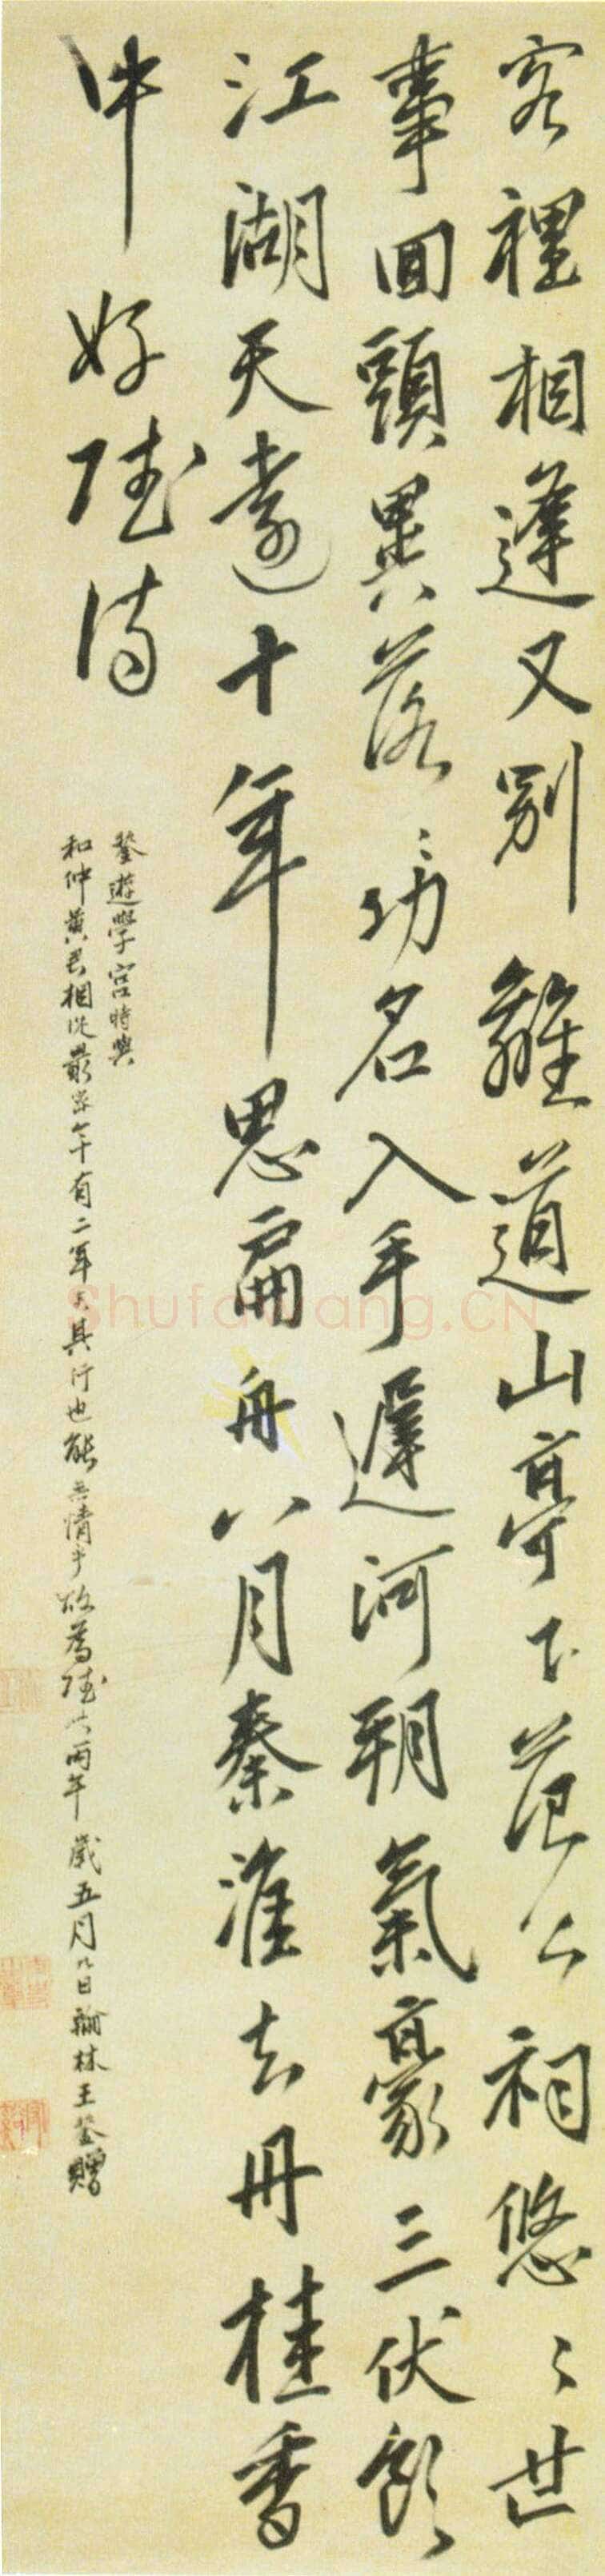 客裡相逢又別離道山亭下范公祠悠〻世
事回頭異落〻功名入手遲河朔氣豪三伏飲
江湖天遠十年思扁舟八月秦淮去丹桂香
中好陸詩
鏊遊學宮時與
和仲黃君相從最 年有二年 其行也能無情乎故為 丙午歲五月八日翰林王鏊贈
Shufawang.CN